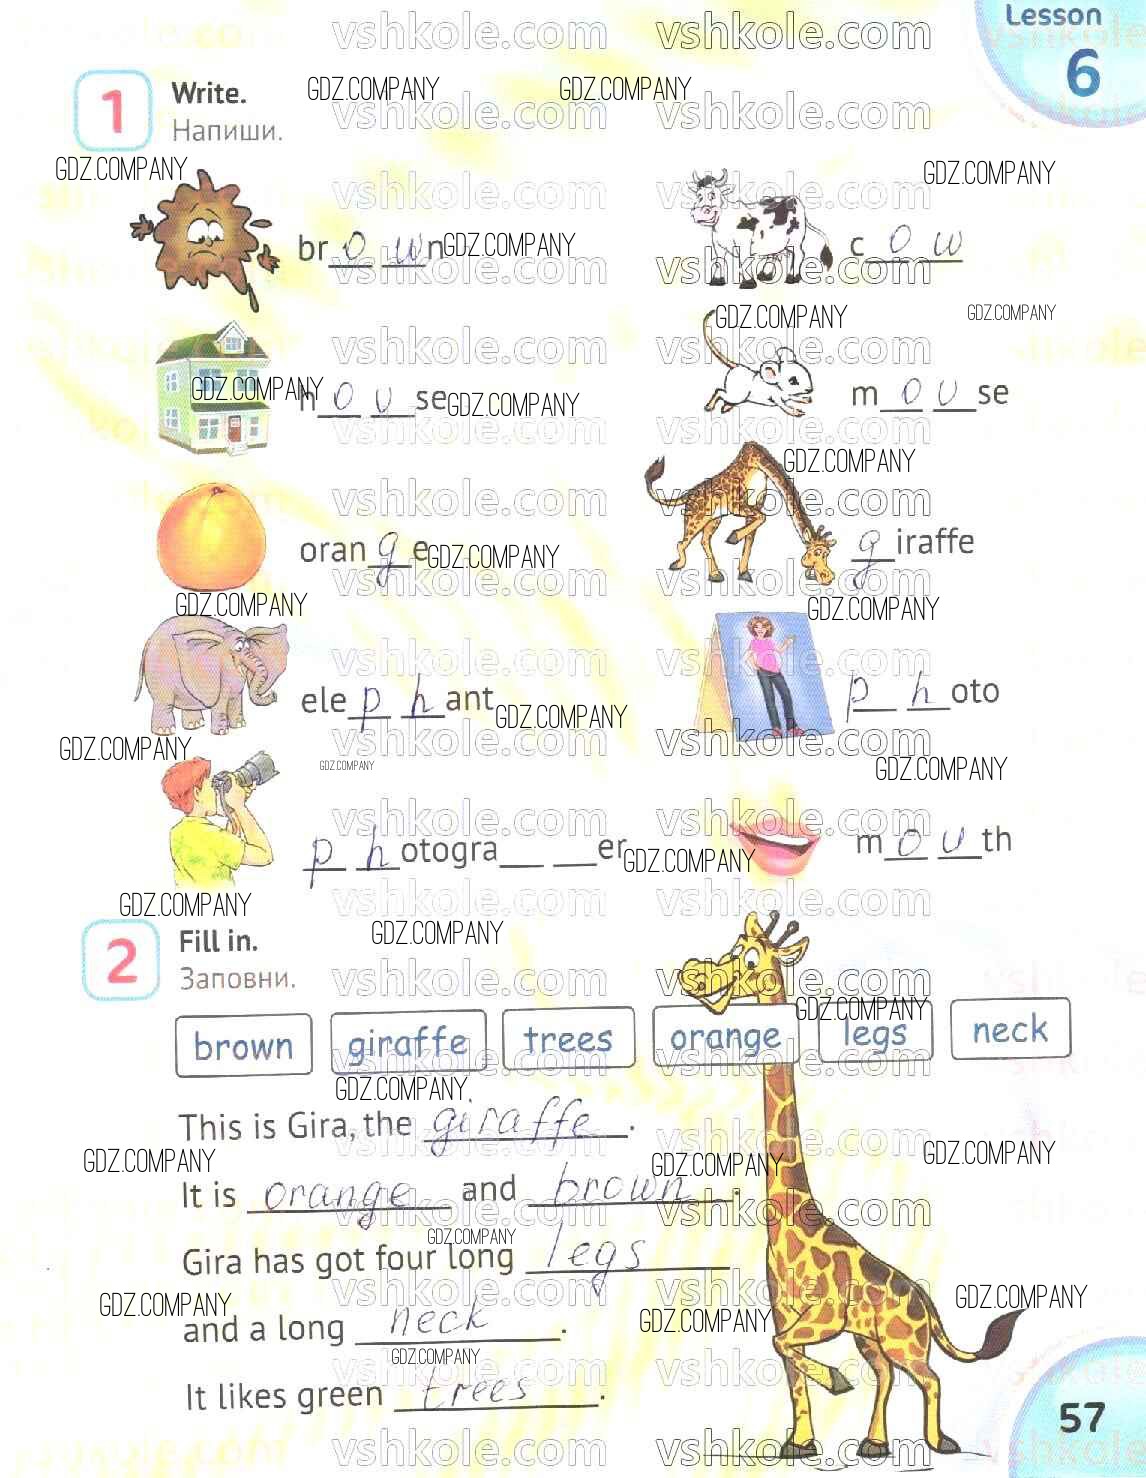 Lesson
6
1 Write.
Напиши.
br o w n
c o w
h o u se
m o u se
oran g e
g iraffe
ele p h ant
p h oto
p h otogra__ __er
m o u th
2 Fill in.
Заповни.
brown giraffe trees orange legs neck
This is Gira, the giraffe.
It is orange and brown.
Gira has got four long legs
and a long neck.
It likes green trees.
57
vshkole.com
GDZ.COMPANY